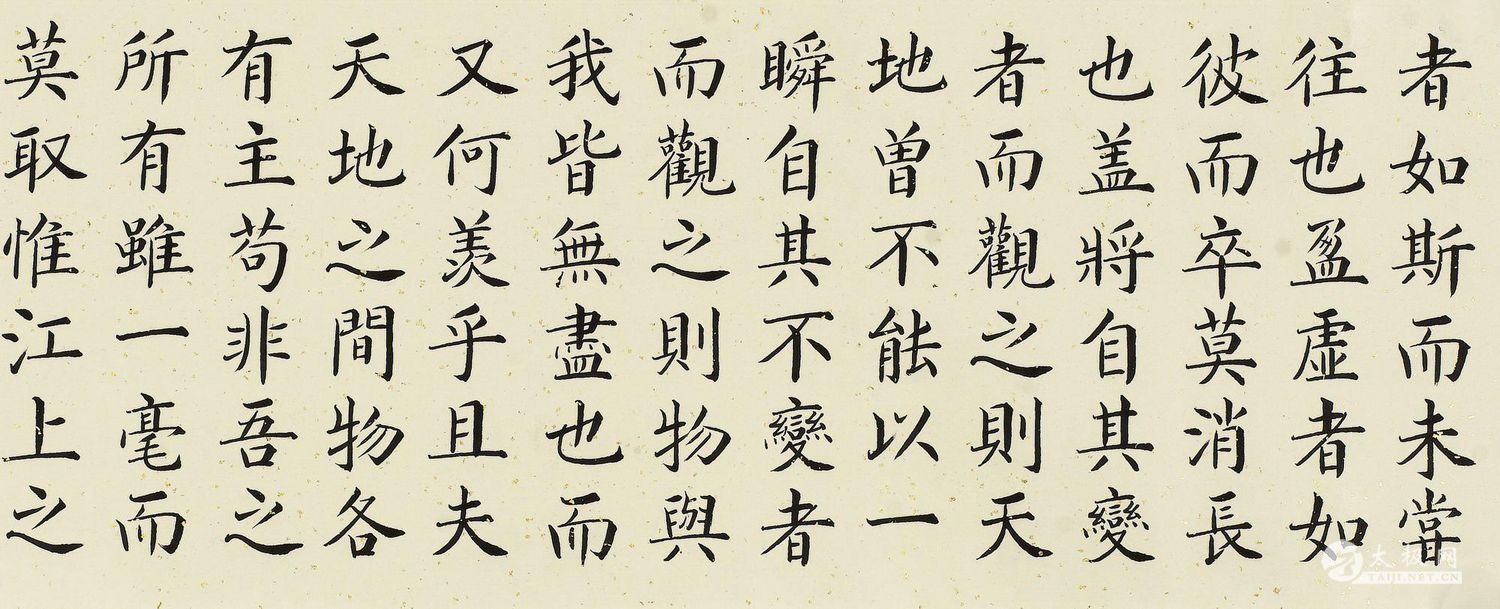 者如斯而未甞
往也盈虚者如
彼而卒莫消長
也盖將自其變
者而觀之則天
地曾不能以一
瞬自其不變者
而觀之則物與
我皆無盡也而
又何羡乎且夫
天地之間物各
有主苟非吾之
所有雖一毫而
莫取惟江上之
太极网
TAIJI.NET.CN